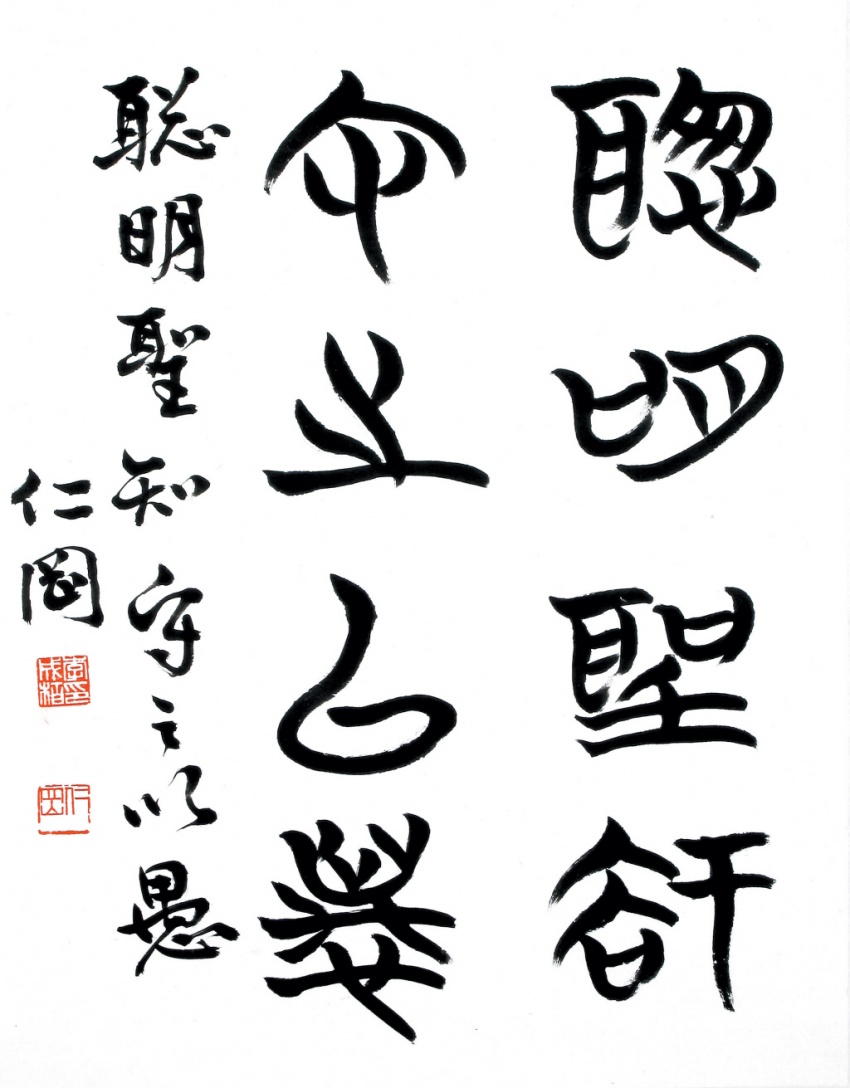 聰明聖知
守之以愚
聡明聖知守之以愚
仁岡